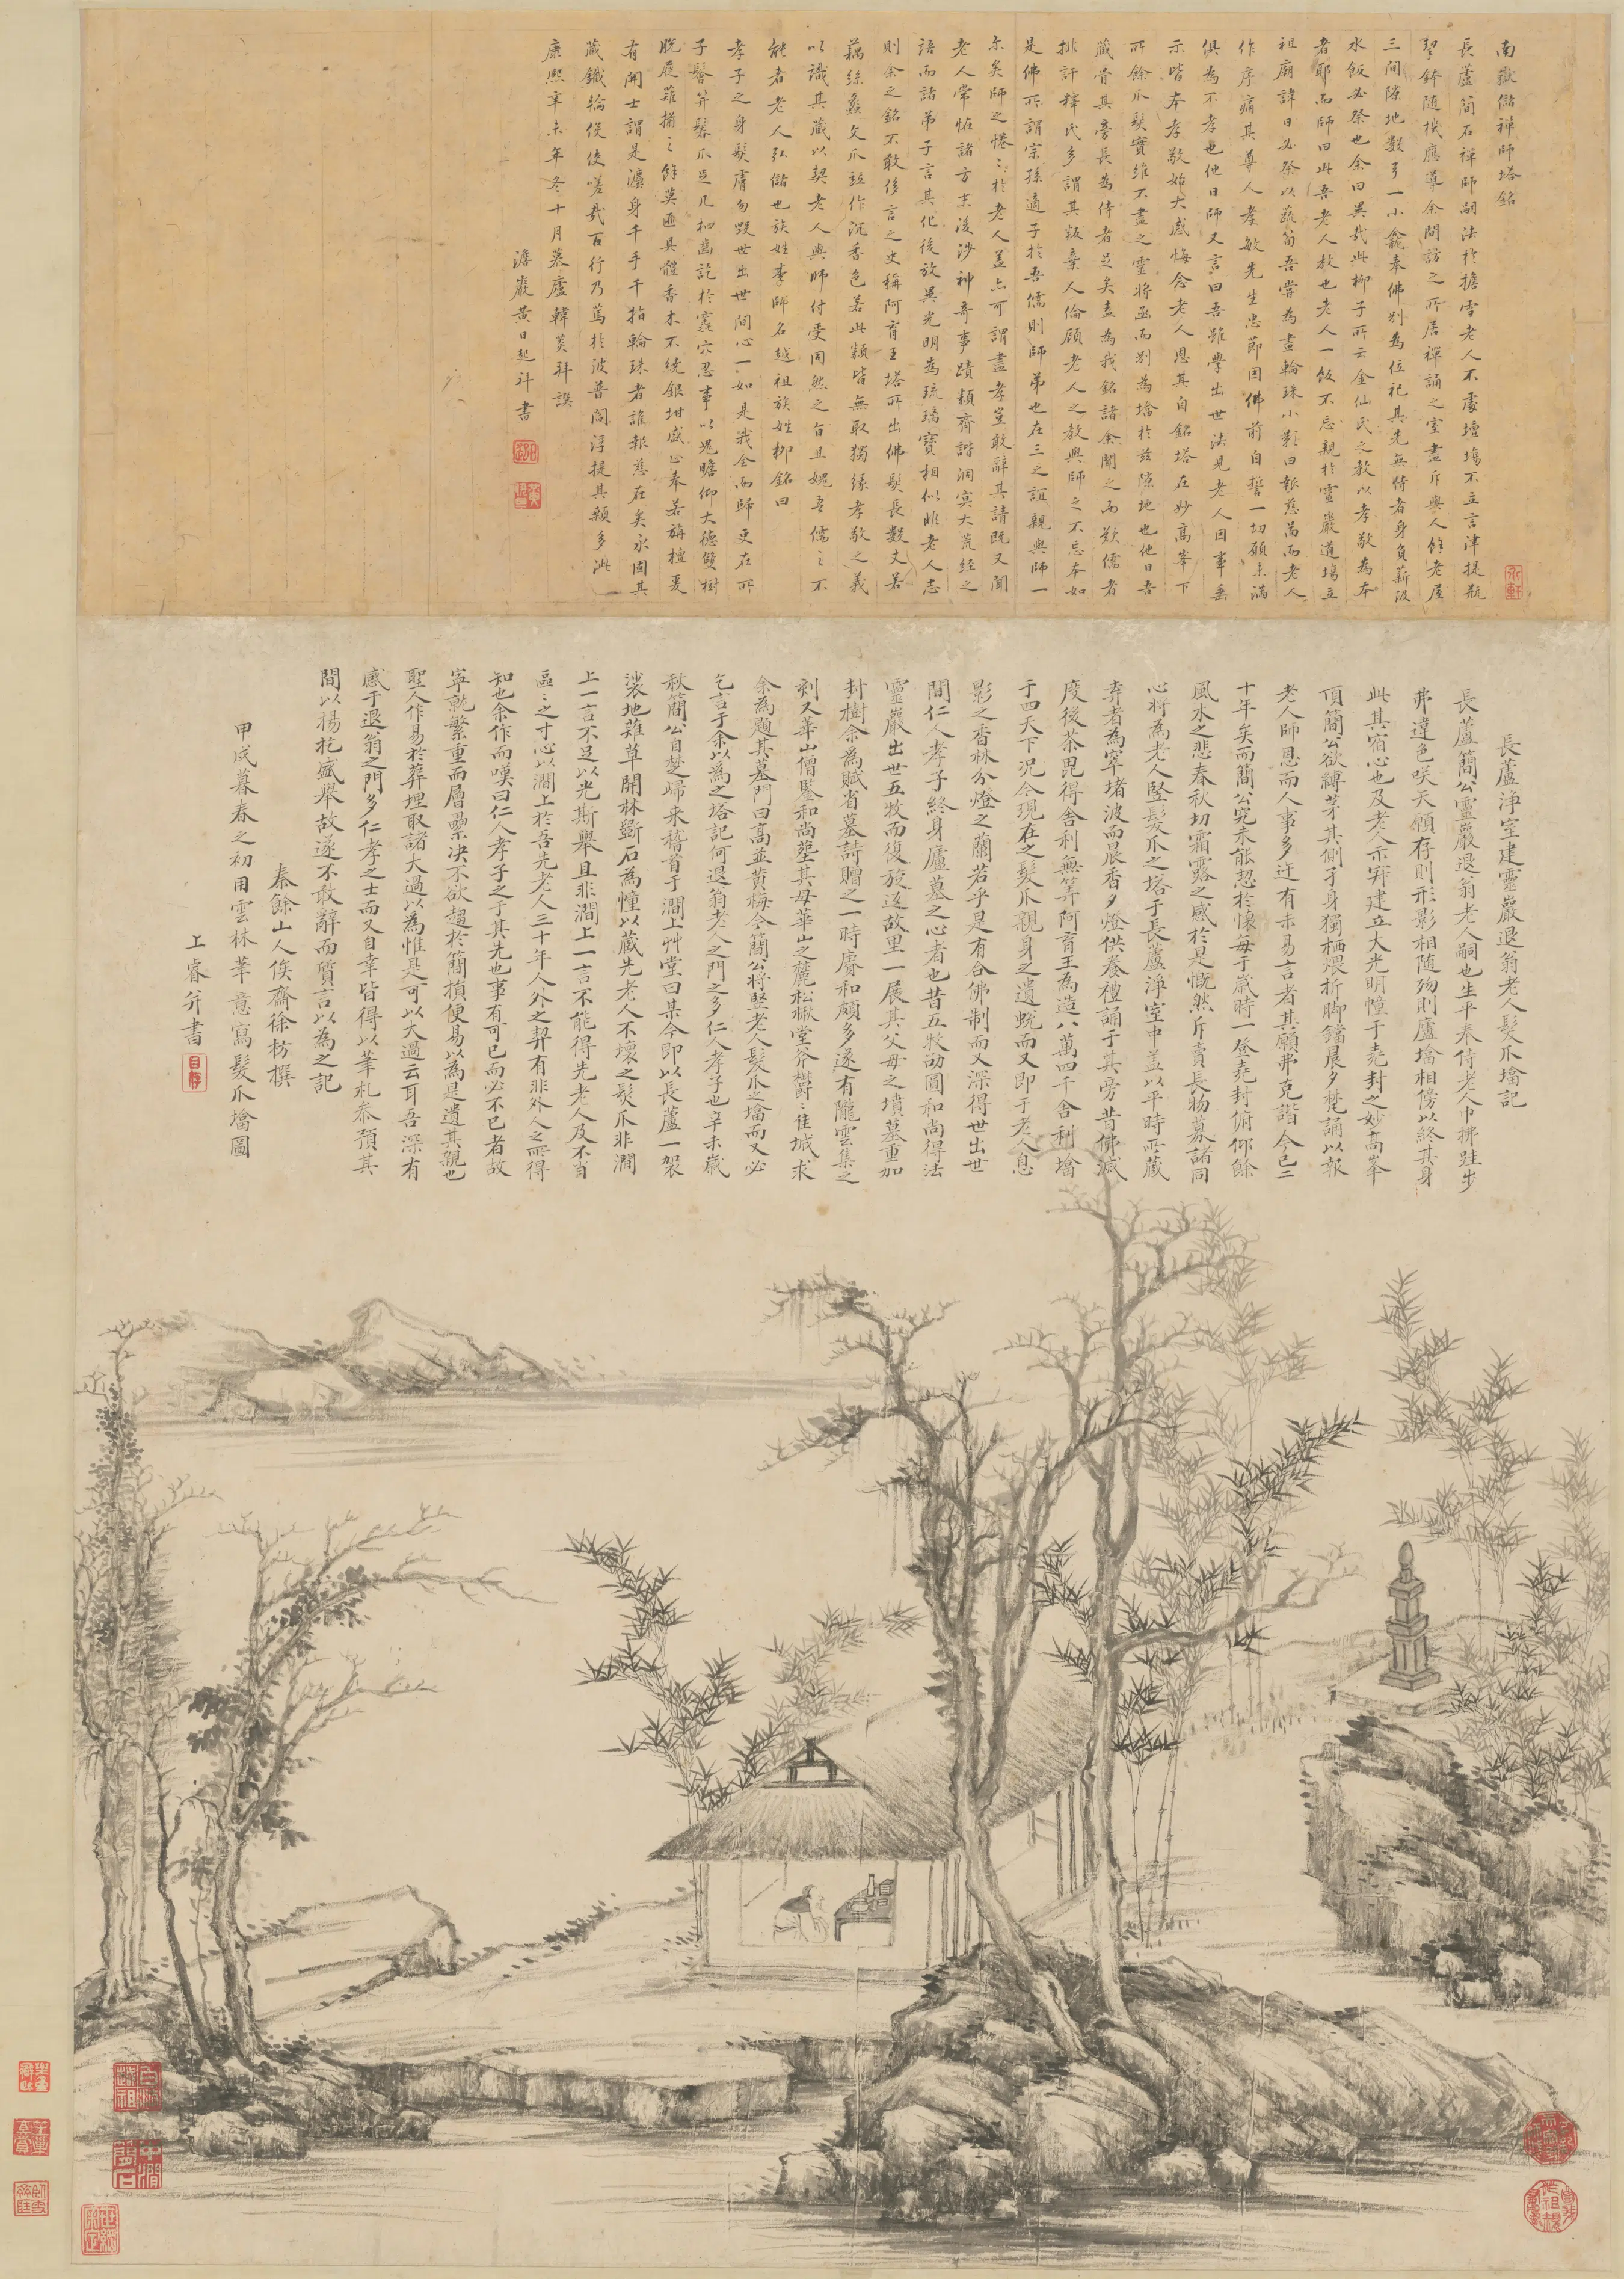 南嶽儲禪師塔銘
長蘆簡石禪師嗣法於擔雪老人不處壇塲不立言津提瓶
挈鉢随機應導余間訪之所居禪誦之室盡斥與人餘老屋
三間隙地數弓一小龕奉佛别為位祀其先無侍者身負薪汲
水飯必祭也余曰異㢤此柳子所云金仙氏之教以孝敬為本
者耶而師曰此吾老人教也老人一飯不忘親於靈巖道塲立
祖廟諱日必祭以蔬筍吾嘗為畫輪珠小影曰報慈啚而老人
作序痛其尊人孝敏先生忠節因佛前自誓一切願未滿
俱為不孝也他日師又言曰吾雖學出世法見老人因事垂
示皆本孝敬始大感悔念老人恩其自銘塔在妙高峯下
所餘爪髮實維不盡之靈將函而别為㙮於茲隙地也他日吾
藏骨其旁長為侍者足矣盍為我銘諸余聞之而歎儒者
排訐釋氏多謂其叛棄人倫顧老人之教與師之不忘本如
是佛所謂宗孫適子於吾儒則師弟也在三之誼親與師一
尓矣師之惓〻於老人盖亦可謂盡孝豈敢辭其請既又聞
老人常恠諸方末後涉神奇事蹟類齊諧洞冥大荒經之
語而諸弟子言其化後放異光明為琉璃寶相似非老人志
則余之銘不敢侈言之史稱阿育王塔所出佛髮長數丈若
藕絲䗍文爪竝作沉香色若此類皆無取獨緣孝敬之義
以識其藏以契老人與師付受固然之旨且媿吾儒之不
能者老人弘儲也族姓李師名越祖族姓柳銘曰
孝子之身髮膚勿毀世出世間心一如是我全而歸更在所
子鬈䒭鬖爪足凡枏齒詑於窾穴忍事以塊瞻仰大德雙樹
脫屣薙揃之餘英匭具體香木不綂銀坩感止奉若旃檀爰
有開士謂是瀍身千手千指輪珠者誰報慈在矣永固其
藏鐵輪倐使嗟㢤百行乃蔫於波普閻浮提其顙多泚
康熙辛未年冬十月慕廬韓菼拜譔
澹巖黄日起拜書
長蘆淨室建靈巖退翁老人髮爪㙮記
長蘆簡公靈巖退翁老人嗣也生平奉侍老人巾拂跬步
弗違色咲天顔存則形影相随殁則廬㙮相傍以終其身
此其宿心也及老人示寂建立大光明幢于堯封之妙高峯
頂簡公欲縛茅其側孑身獨栖煨折脚鐺晨夕梵誦以報
老人師恩而人事多迕有未易言者其願弗克諧今已二
十年矣而簡公究未能恝於懷每于歲時一登堯封俯仰餘
風木之悲春秋切霜露之感於是慨然斥賣長物募諸同
心將為老人竪髮爪之塔于長蘆淨室中盖以平時所藏
弆者為窣堵波而晨香夕燈供養禮誦于其旁昔佛滅
度後茶毘得舍利無筭阿育王為造八萬四千舍利㙮
于四天下况今現在之髮爪親身之遺蛻而又即于老人息
影之香林分燈之蘭若乎是有合佛制而又深得世出世
間仁人孝子終身廬墓之心者也昔五牧劬圓和尚得法
靈巖出世五牧而復旋返故里一展其父母之墳墓重加
封樹余為賦省墓詩贈之一時賡和頗多遂有隴雲集之
刻又華山僧鑒和尚塟其母華山之麓松楸堂斧欝〻佳城求
余為題其墓門曰高並黄梅今簡公將竪老人髮爪之㙮而又必
乞言于余以為之塔記何退翁老人之門之多仁人孝子也辛未歲
秋簡公自楚歸来稽首于澗上艸堂曰某今即以長蘆一袈
裟地薙草開林斲石為幢以藏先老人不壞之髮爪非澗
上一言不足以光斯舉且非澗上一言不能得先老人及不肖
區〻之寸心以澗上於吾先老人三十年人外之契有非外人之所得
知也余作而嘆曰仁人孝子之于其先也事有可已而必不已者故
寧就繁重而層壘決不欲趨於簡損便易以為是遺其親也
聖人作易於葬埋取諸大過以為惟是可以大過云耳吾深有
感于退翁之門多仁孝之士而又自幸皆得以筆札叅預其
間以揚扢盛舉故遂不敢辭而質言以為之記
秦餘山人俟齋徐枋撰
甲戌暮春之初用雲林筆意寫髮爪㙮圖
上睿并書